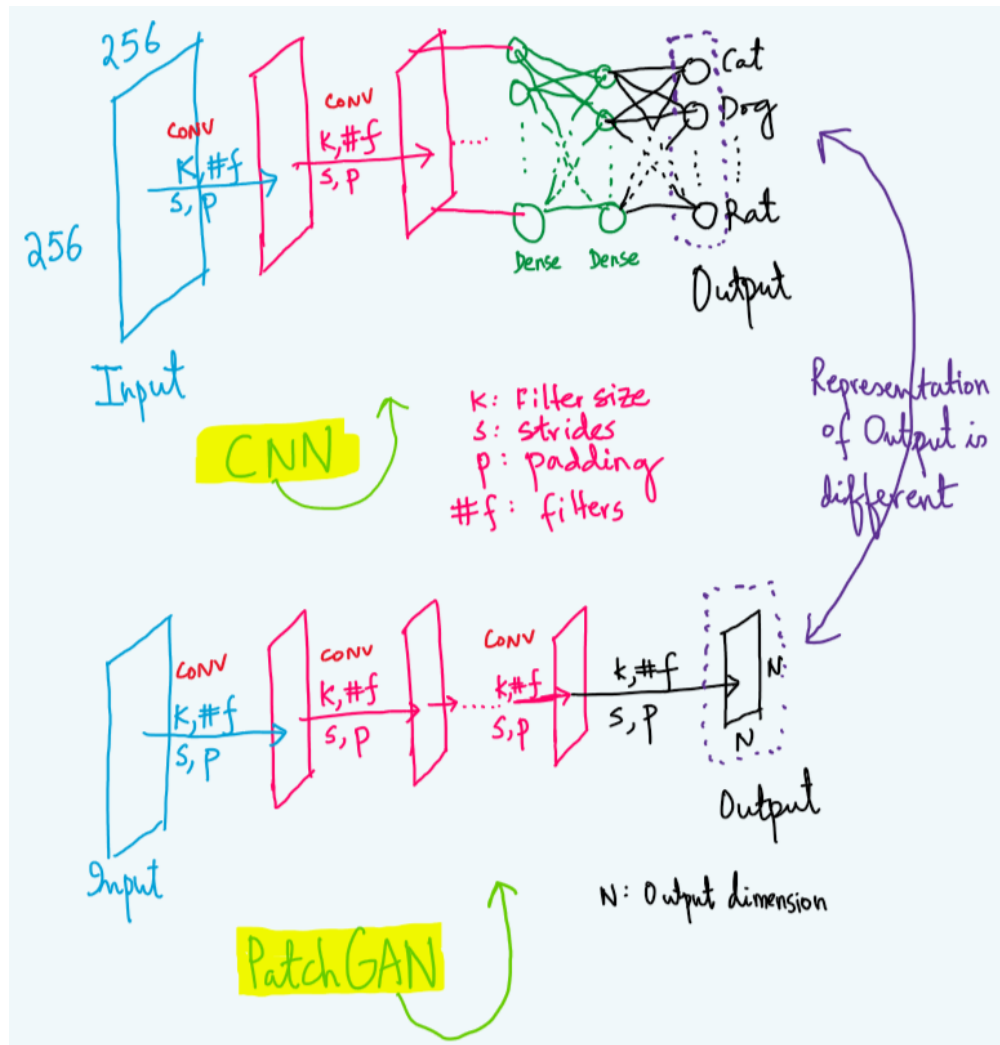 256
256
CONV
K, #f
S, P
CONV
K, #f
S, P
Input
Dense Dense
Cat
Dog
Rat
Output
CNN
K: Filter size
S: strides
P: padding
#f: filters
Representation
of Output is
different
CONV
K, #f
S, P
CONV
K, #f
S, P
CONV
K, #f
S, P
K, #f
S, P
N
N
Input
Output
N: Output dimension
PatchGAN